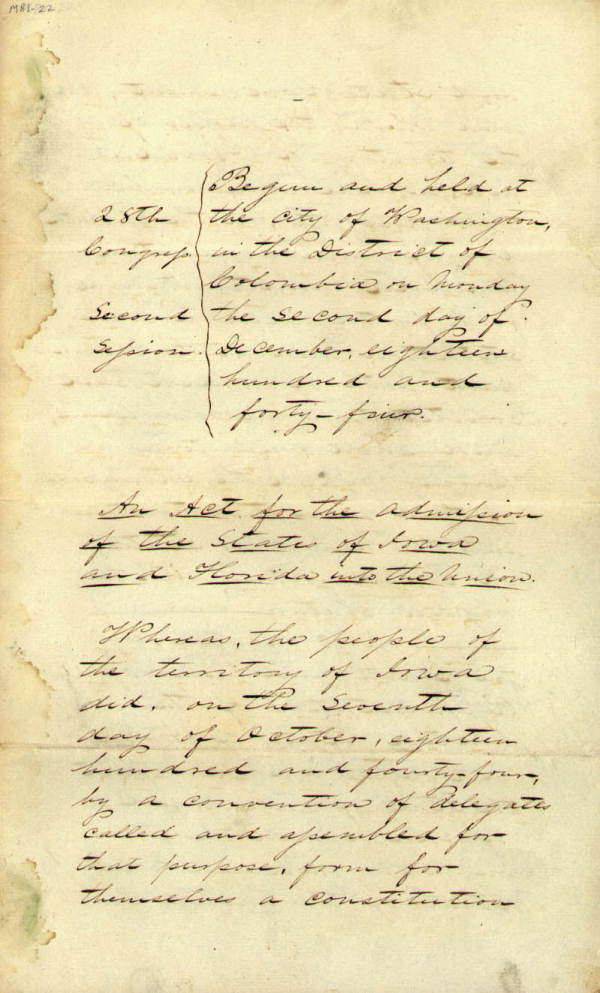 M81-22
28th
Congress
Second
Session.
Begun and held at
the city of Washington,
in the District of
Colombia, on Monday
the second day of
December, eighteen
hundred and
forty-four.
An Act for the admission
of the States of Iowa
and Florida into the Union.
Whereas, the people of
the territory of Iowa
did, on the Seventh
day of October, eighteen
hundred and fourty-four,
by a convention of delegates
called and assembled for
that purpose, form for
themselves a constitution